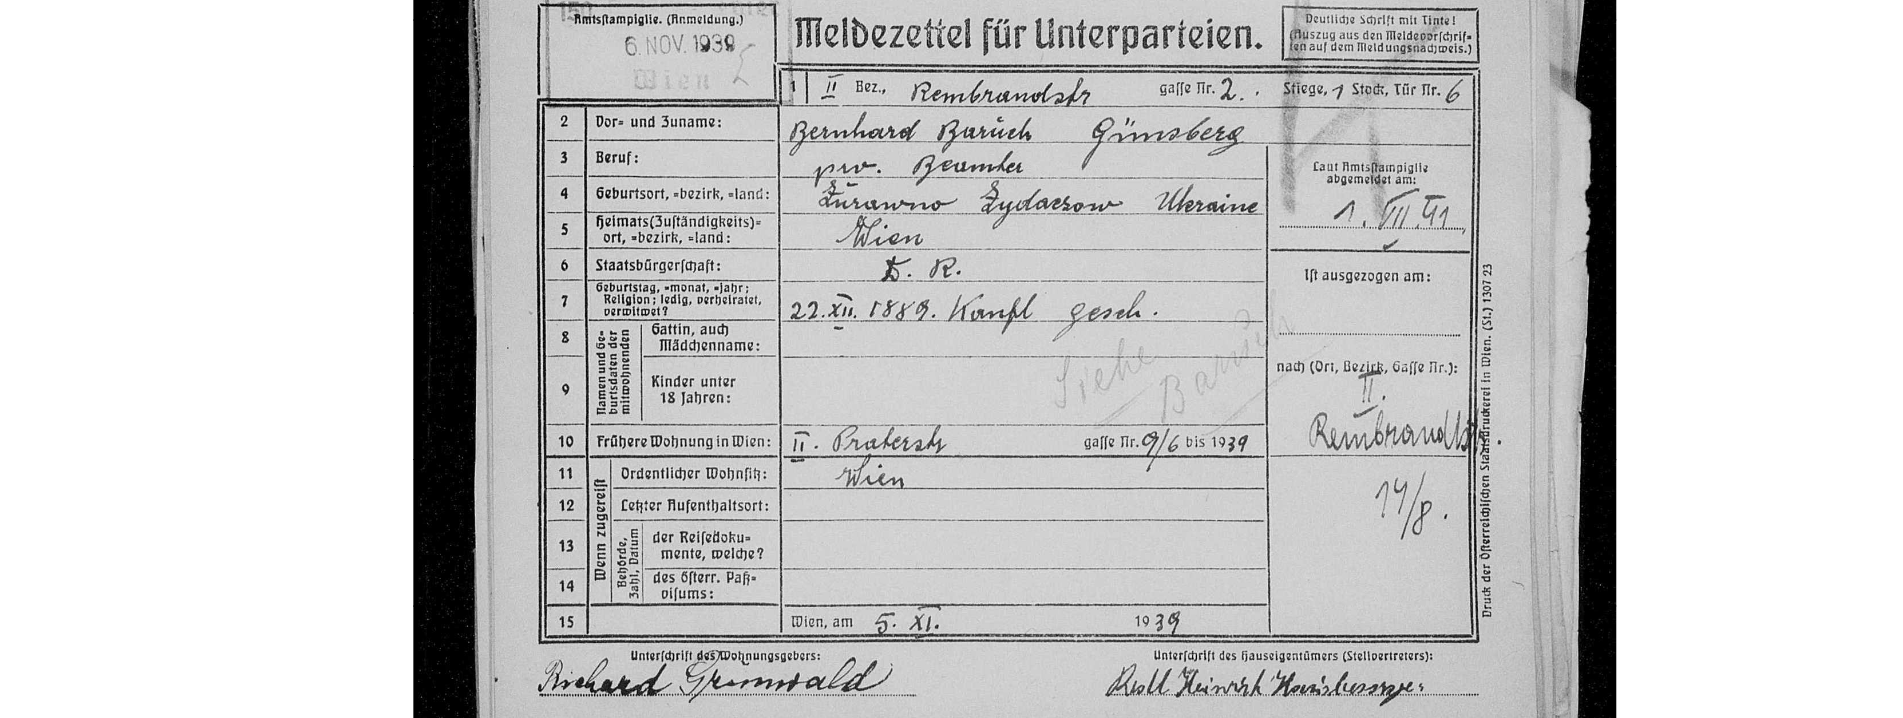 Amtsstampiglie. (Anmeldung.)
6. NOV. 1939
Wien
Meldezettel für Unterparteien.
Deutliche Schrift mit Tinte!
(Auszug aus den Meldevorschrif-
ten auf dem Meldungsnachweis.)
1 II Bez., Rembrandstr gasse Nr. 2. Stiege, 1 Stock, Tür Nr. 6
2 Vor- und Zuname: Bernhard Baruch Günsberg
3 Beruf: prv. Beamter
4 Geburtsort, -bezirk, -land: Żurawno Żydaczow Ukraine
5 Heimats(Zuständigkeits)-
ort, -bezirk, -land: Wien
6 Staatsbürgerschaft: D. R.
7 Geburtstag, -monat, -jahr;
Religion; ledig, verheiratet,
verwitwet? 22. XII. 1889. Konfl gesch.
Namen und Ge-
burtsdaten der
mitwohnenden
8 Gattin, auch
Mädchenname:
9 Kinder unter
18 Jahren:
Siehe
Baruch
10 Frühere Wohnung in Wien: II. Praterstr gasse Nr. 9/6 bis 1939
Wenn zugereist
11 Ordentlicher Wohnsitz: Wien
12 Letzter Aufenthaltsort:
Behörde,
Zahl, Datum
13 der Reisedoku-
mente, welche?
14 des österr. Paß-
visums:
15 Wien, am 5. XI. 1939
Laut Amtsstampiglie
abgemeldet am:
1. VII 41
Ist ausgezogen am:
nach (Ort, Bezirk, Gasse Nr.):
II.
Rembrandtstr.
14/8.
Druck der Österreichischen Staatsdruckerei in Wien. (St.) 1307 23
Unterschrift des Wohnungsgebers:
Richard Grünwald
Unterschrift des Hauseigentümers (Stellvertreters):
Heinrich Hausbesorger